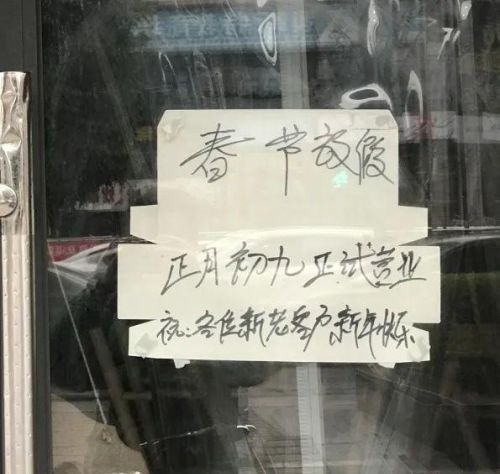 春节放假
正月初九正试营业
祝:各位新老客户新年快乐